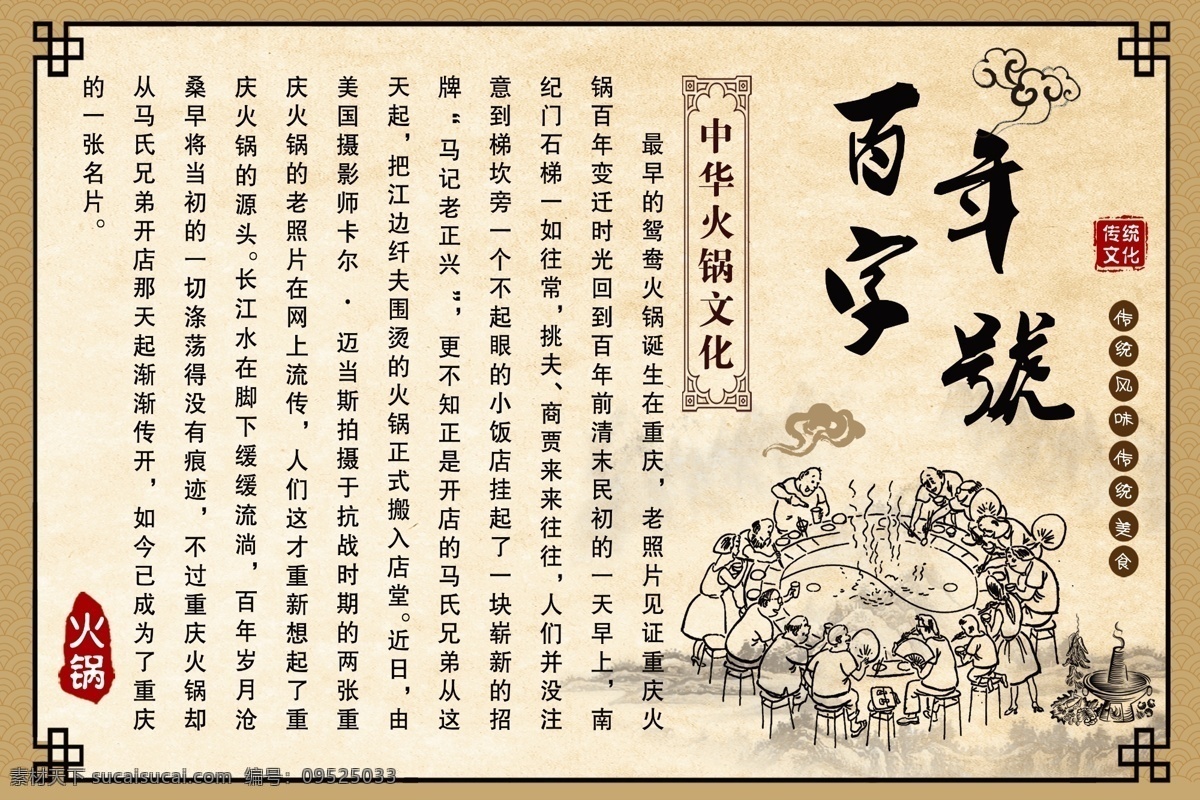 传统
文化
传统风味传统美食
百年
字號
中华火锅文化
最早的鸳鸯火锅诞生在重庆，老照片见证重庆火
锅百年变迁时光回到百年前清末民初的一天早上，南
纪门石梯一如往常，挑夫、商贾来来往往，人们并没注
意到梯坎旁一个不起眼的小饭店挂起了一块崭新的招
牌“马记老正兴”，更不知正是开店的马氏兄弟从这
天起，把江边纤夫围烫的火锅正式搬入店堂。近日，由
美国摄影师卡尔·迈当斯拍摄于抗战时期的两张重
庆火锅的老照片在网上流传，人们这才重新想起了重
庆火锅的源头。长江水在脚下缓缓流淌，百年岁月沧
桑早将当初的一切涤荡得没有痕迹，不过重庆火锅却
从马氏兄弟开店那天起渐渐传开，如今已成为了重庆
的一张名片。
火锅
素材天下 sucaisucai.com 编号：09525033